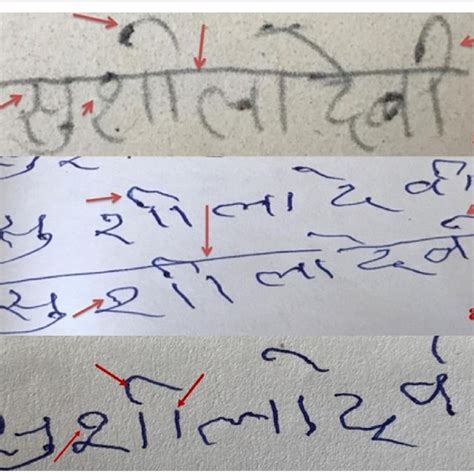 सुशीला देवी
सुशीला देवी
सुशीला देवी
सुशीला देवी